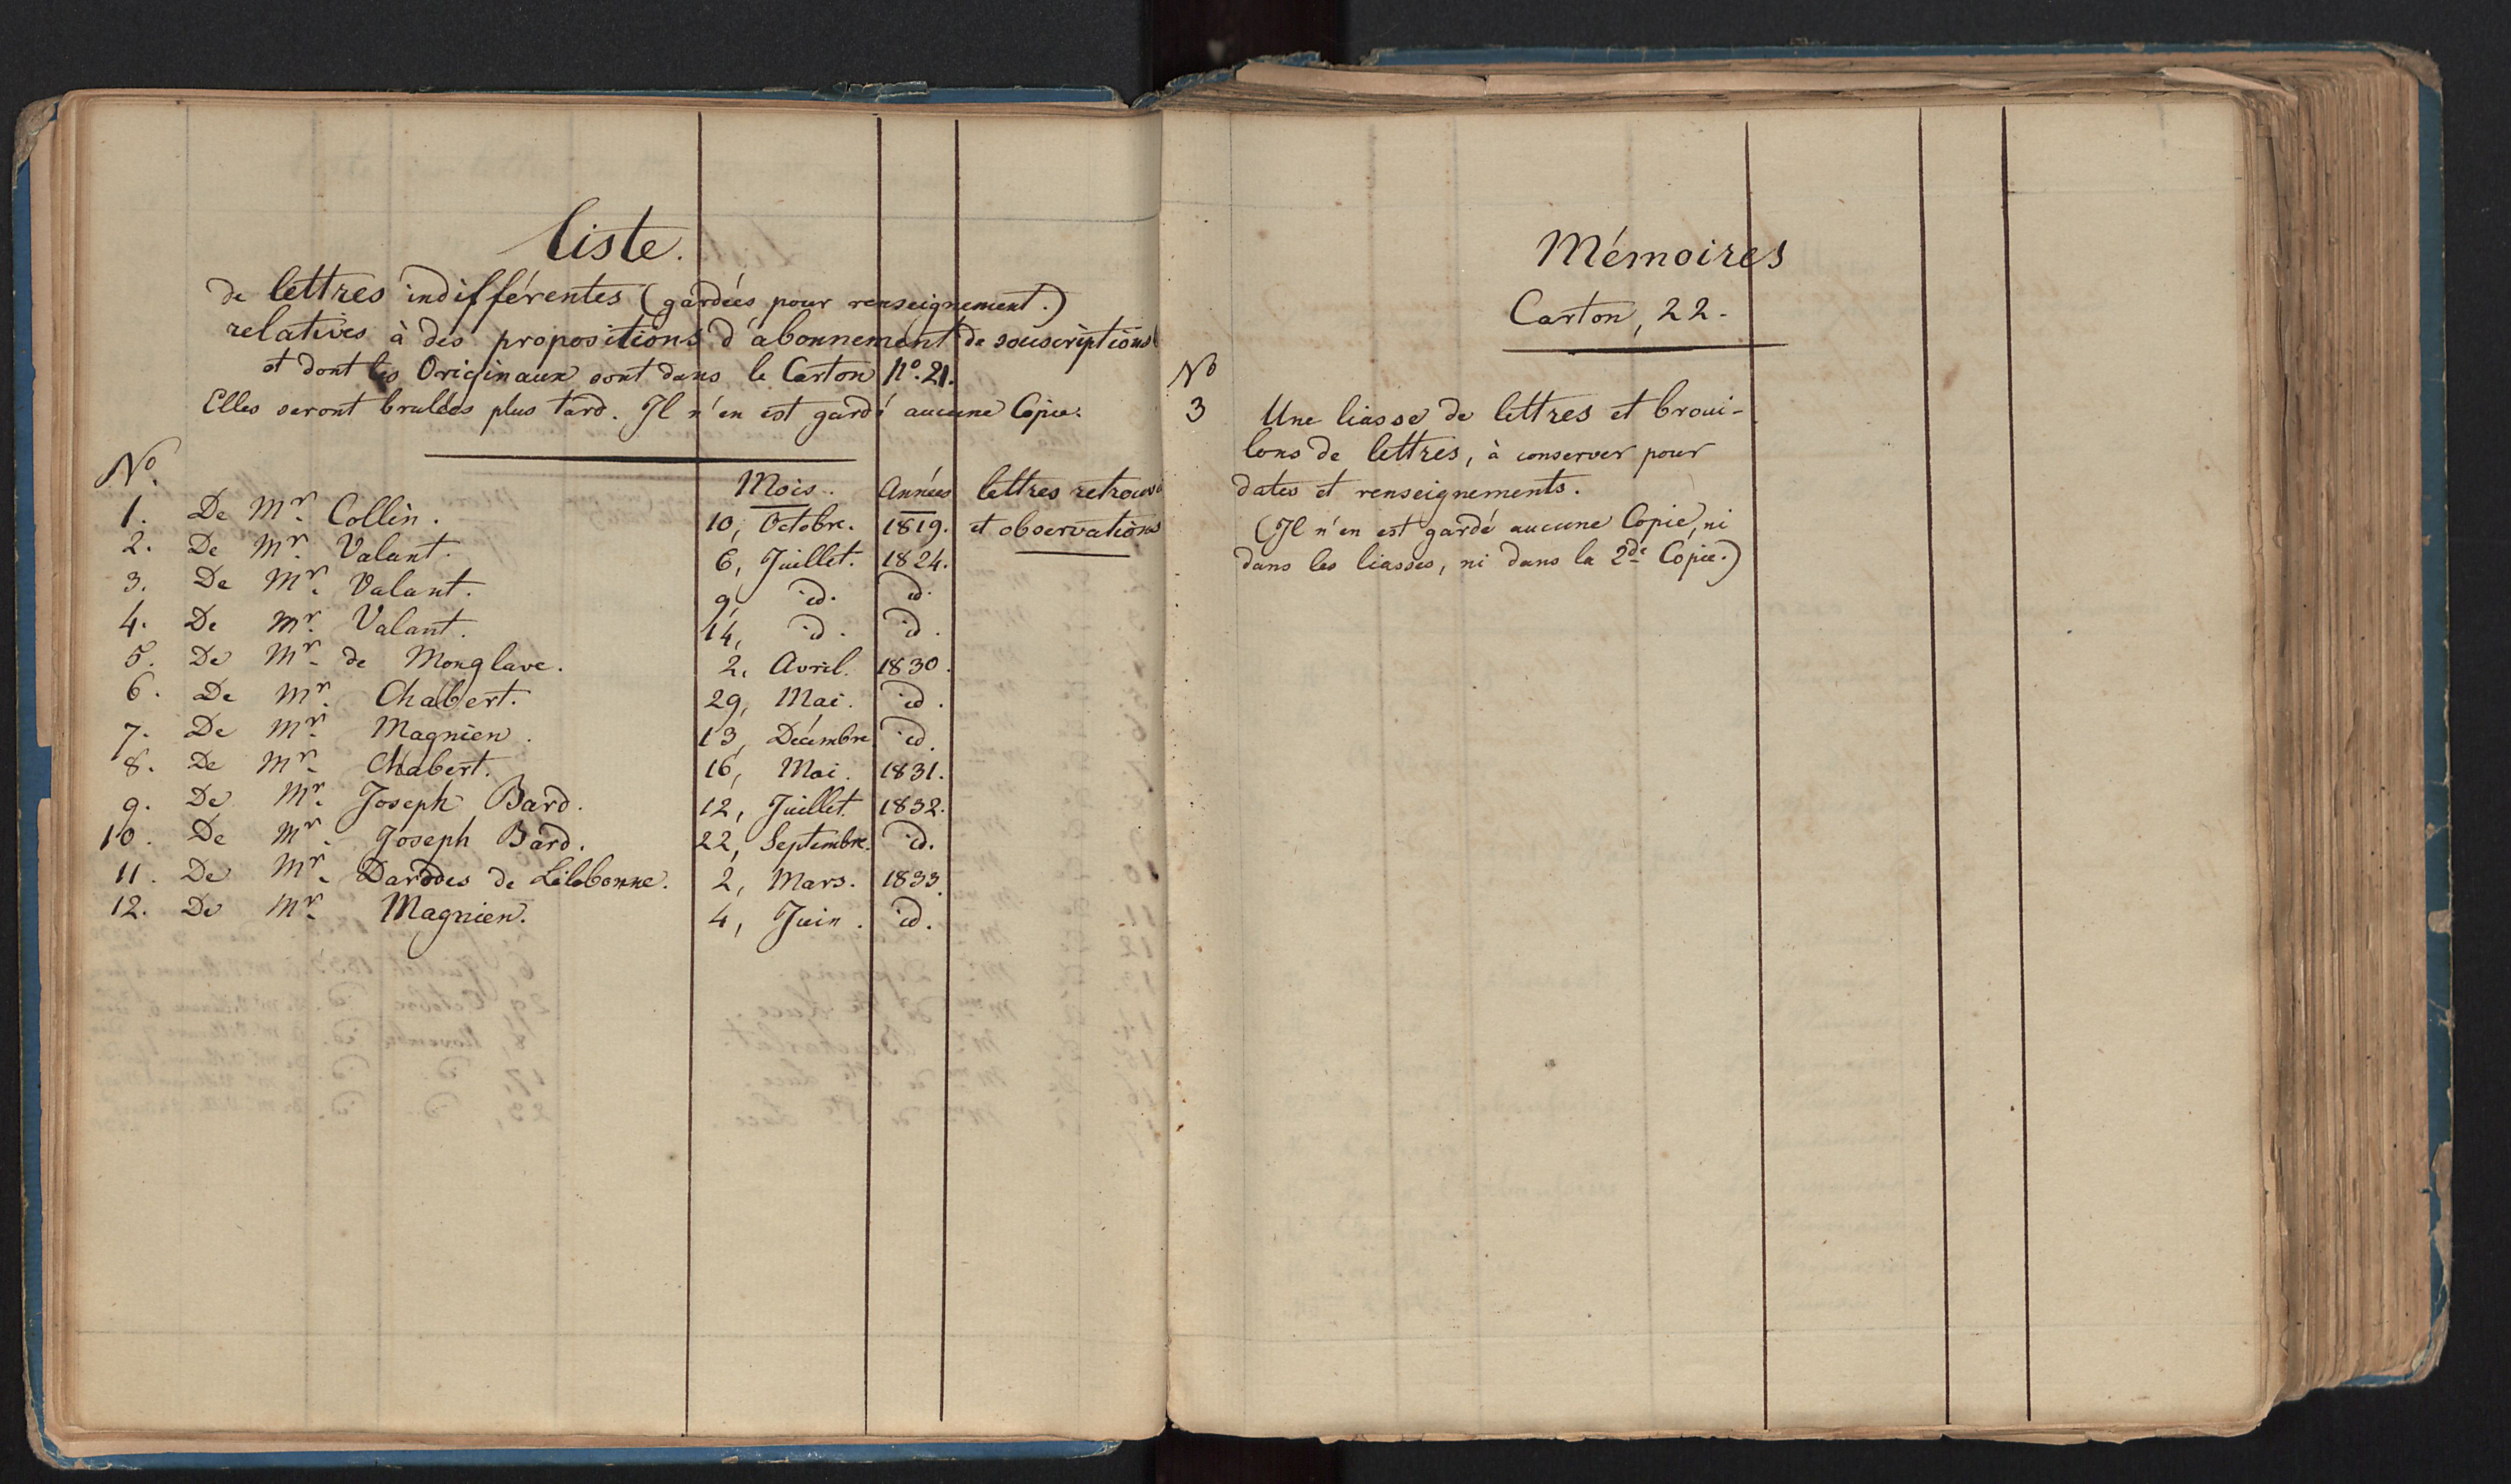 Liste.
de lettres indifférentes (gardées pour renseignement.)
relatives à des propositions d'abonnement de souscriptions
et dont les Originaux sont dans le Carton N.º 21.
Elles seront brulées plus tard. Il n'en est gardé aucune Copie.
Nº. Mois. Années lettres retrouvé
et observations
1. De Mr. Collin. 10, Octobre. 1819.
2. De Mr. Valant. 6, Juillet. 1824.
3. De Mr. Valant. 9, id. id.
4. De Mr. Valant. 14, id. id.
5. De Mr. de Monglave. 2, Avril. 1830.
6. De Mr. Chabert. 29, Mai. id.
7. De Mr. Magnien. 13, Décembre id.
8. De Mr. Chabert. 16, Mai. 1831.
9. De Mr. Joseph Bard. 12, Juillet. 1832.
10. De Mr. Joseph Bard. 22, Septembre. id.
11. De Mr. Darodes de Lilebonne. 2, Mars. 1833.
12. De Mr. Magnien. 4, Juin. id.
Mémoires
Carton, 22.
Nº
3 Une liasse de lettres et broui-
lons de lettres, à conserver pour
dates et renseignements.
(Il n'en est gardé aucune Copie, ni
dans les liasses, ni dans la 2de Copie.)